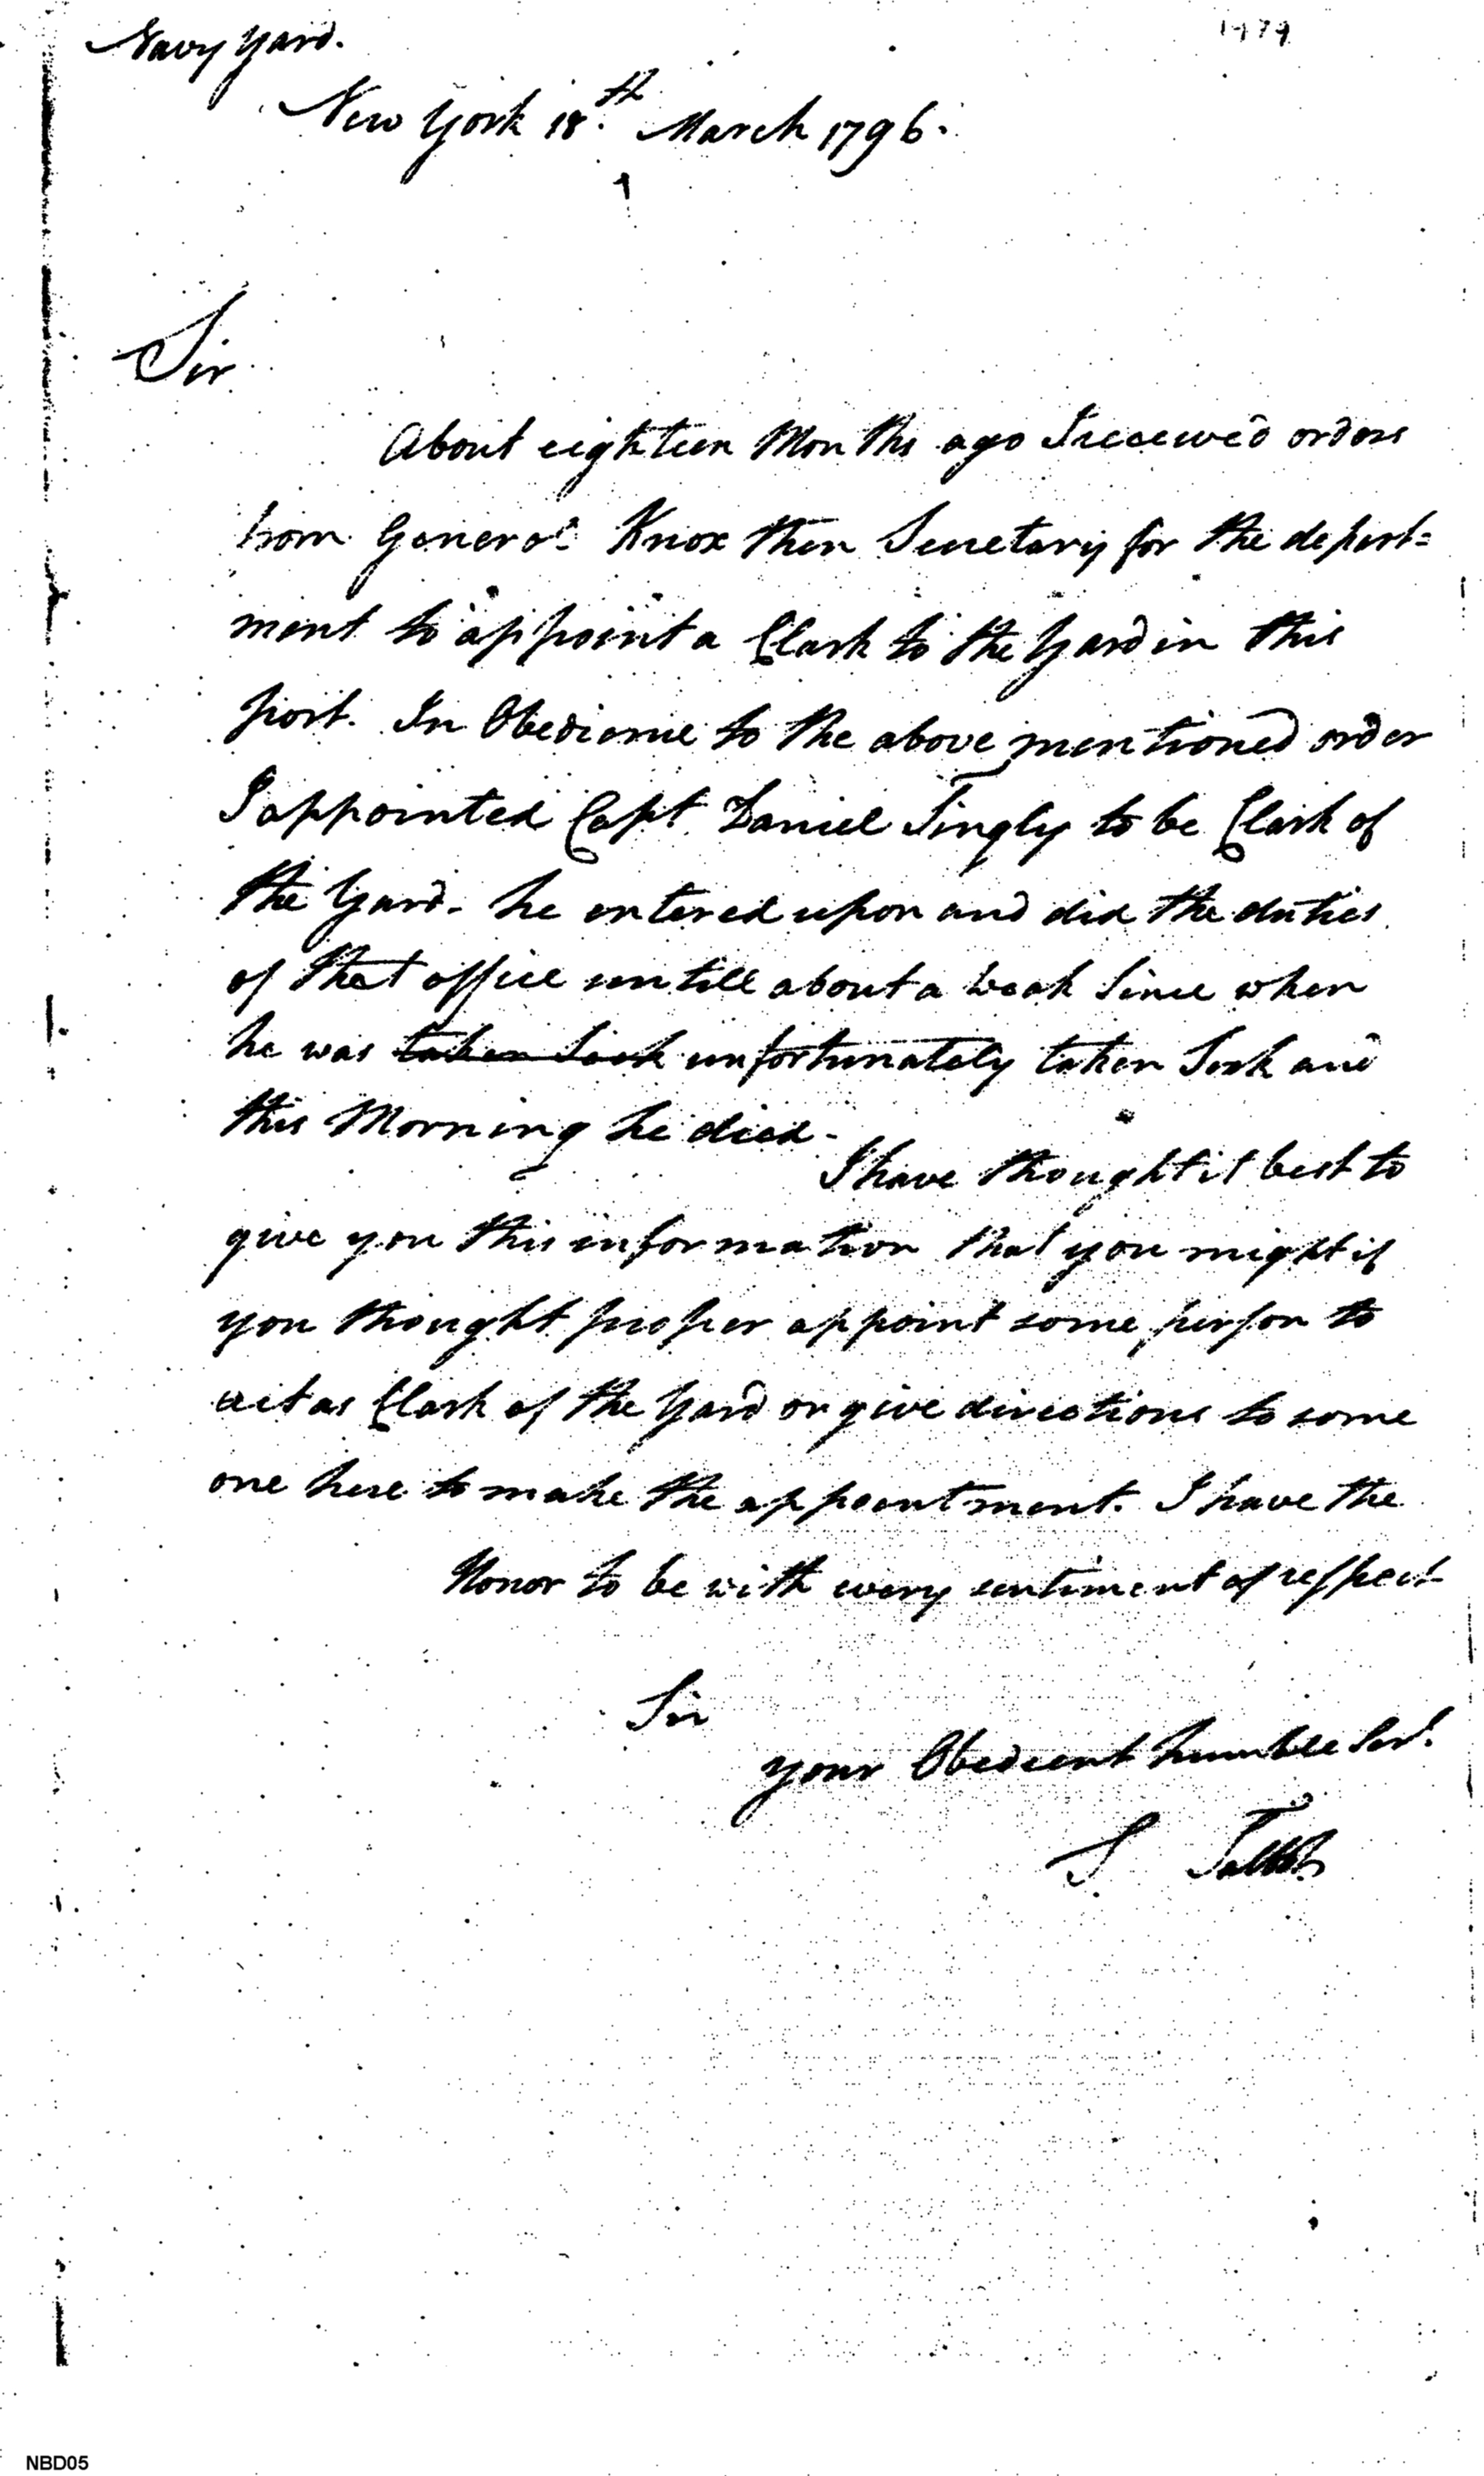 Navy Yard.
1979
New York 18.th March 1796.
Sir
About eighteen Months ago I receiwed orders
from General Knox then Secretary for the depart=
ment to appoint a Clark to the Yard in this
port. In Obedience to the above mentioned order
I appointed Capt Daniel Tingly to be Clark of
the Yard. he entered upon and did the duties
of that office untill about a weak Since when
he was taken Sick unfortunately taken Sick and
this Morning he died.
I have thought it best to
give you this information that you might if
you thought proper appoint some person to
act as Clark of the Yard or give directions to some
one here to make the appointment. I have the
Honor to be with every sentiment of respect
Sir
your Obedient humble Sert.
S Talbot
NBD05